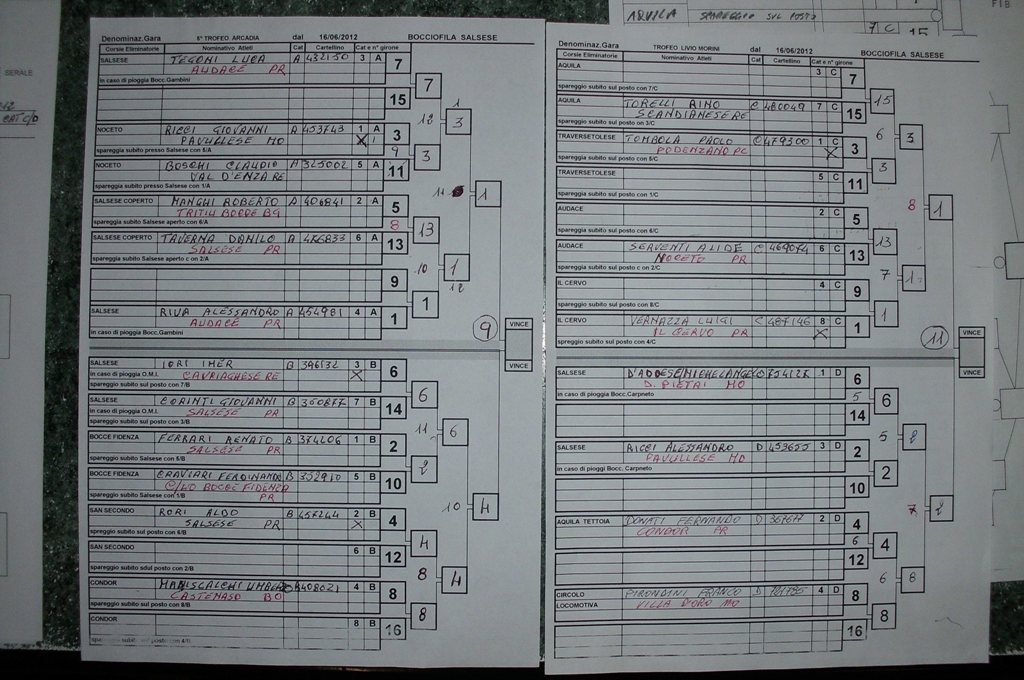 AQUILA SPAREGGIO SUL POSTO
7 C 15
F18
SERALE
CAT C/D
Denominaz.Gara 6° TROFEO ARCADIA dal 16/06/2012 BOCCIOFILA SALSESE
Corsie Eliminatorie Nominativo Atleti Cat Cartellino Cat e n° girone
SALSESE TEGONI LUCA A 432150 3 A 7
AUDACE PR
in caso di pioggia Bocc.Gambini
7
15
12 3
NOCETO RICCI GIOVANNI A 453743 1 A 3
PAVULLESE MO X
spareggia subito presso Salsese con 5/A
9 3
NOCETO BOSCHI CLAUDIO A 325002 5 A 11
VAL D'ENZA RE
spareggia subito presso con 1/A
11 1
SALSESE COPERTO MANGHI ROBERTO A 406841 2 A 5
TRITIUM BOCCE BG
spareggia subito Salsese aperto con 6/A
8 13
SALSESE COPERTO TAVERNA DANILO A 6 A 13
SALSESE PR
spareggia subito Salsese aperto c on 2/A
10 1
12
9
1
SALSESE RIVA ALESSANDRO A 454981 4 A 1
AUDACE PR
in caso di pioggia Bocc.Gambini
9 VINCE
VINCE
SALSESE IORI IMER B 396132 3 B 6
in caso di pioggia O.M.I. CAVRIAGHESE RE X
spareggia subito sul posto con 7/B
6
SALSESE CORINTI GIOVANNI B 360877 7 B 14
in caso di pioggia O.M.I. SALSESE PR
spareggia subito sul posto con 3/B
11 6
BOCCE FIDENZA FERRARI RENATO B 374406 1 B 2
SALSESE PR
spareggia subito Salsese con 5/B
2
BOCCE FIDENZA CRAVIARI FERDINANDO B 352910 5 B 10
C/LO BOCCE FIDENZA
spareggia subito Salsese con 1/B PR
10 4
SAN SECONDO RORI ALDO B 457244 2 B 4
SALSESE PR X
spareggia subito sul posto con 6/B
4
SAN SECONDO 6 B 12
spareggia subito sul posto con 2/B
8 4
CONDOR MANISCALCHI UMBERTO B 408021 4 B 8
CASTENASO BO
spareggia subito sul posto con 8/B
8
CONDOR 8 B 16
spareggia subito sul posto con 4/B
Denominaz.Gara TROFEO LIVIO MORINI dal 16/06/2012 BOCCIOFILA SALSESE
Corsie Eliminatorie Nominativo Atleti Cat Cartellino Cat e n° girone
AQUILA 3 C 7
spareggio subito sul posto con 7/C
15
AQUILA TORELLI RINO C 480049 7 C 15
SCANDIANESE RE
spareggio subito sul posto on 3/C
6 3
TRAVERSETOLESE TOMBOLA PAOLO C 479300 1 C 3
PODENZANO PC X
spareggio subito sul posto con 5/C
3
TRAVERSETOLESE 5 C 11
spareggio subito sul posto con 1/C
8 1
AUDACE 2 C 5
spareggio subito sul posto con 6/C
13
AUDACE SERVENTI ALIDE C 469074 6 C 13
NOCETO PR
spareggio subito sul posto c on 2/C
7 1
IL CERVO 4 C 9
spareggio subito sul posto con 8/C
1
IL CERVO VERNAZZA LUIGI C 487146 8 C 1
IL CERVO PR X
spareggio subito sul posto con 4/C
11 VINCE
VINCE
SALSESE D'ADDESE MICHELANGELO 1 D 6
D. PIETRI MO
in caso di pioggia Bocc.Carpneto
5 6
14
5 2
SALSESE RICCI ALESSANDRO D 453655 3 D 2
PAVULLESE MO
in caso di pioggi Bocc. Carpneto
2
10
7 8
AQUILA TETTOIA DONATI FERNANDO D 367677 2 D 4
CONDOR PR
6 4
12
6 8
CIRCOLO PIRONDINI FRANCO D 4 D 8
LOCOMOTIVA VILLA D'ORO MO
8
16